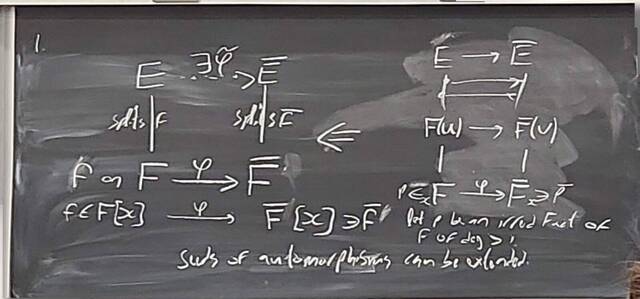 1.
E ∃φ̃ → E̅
splits f splits f̅
f on F φ → F̅
f∈F[x] φ → F̅[x]∋f̅
E → E̅
F(u) → F̅(v)
p∈ₓF φ → F̅ₓ∋p̅
Let p be an irred Fact of
F of deg > 1
of automorphisms can be extended.